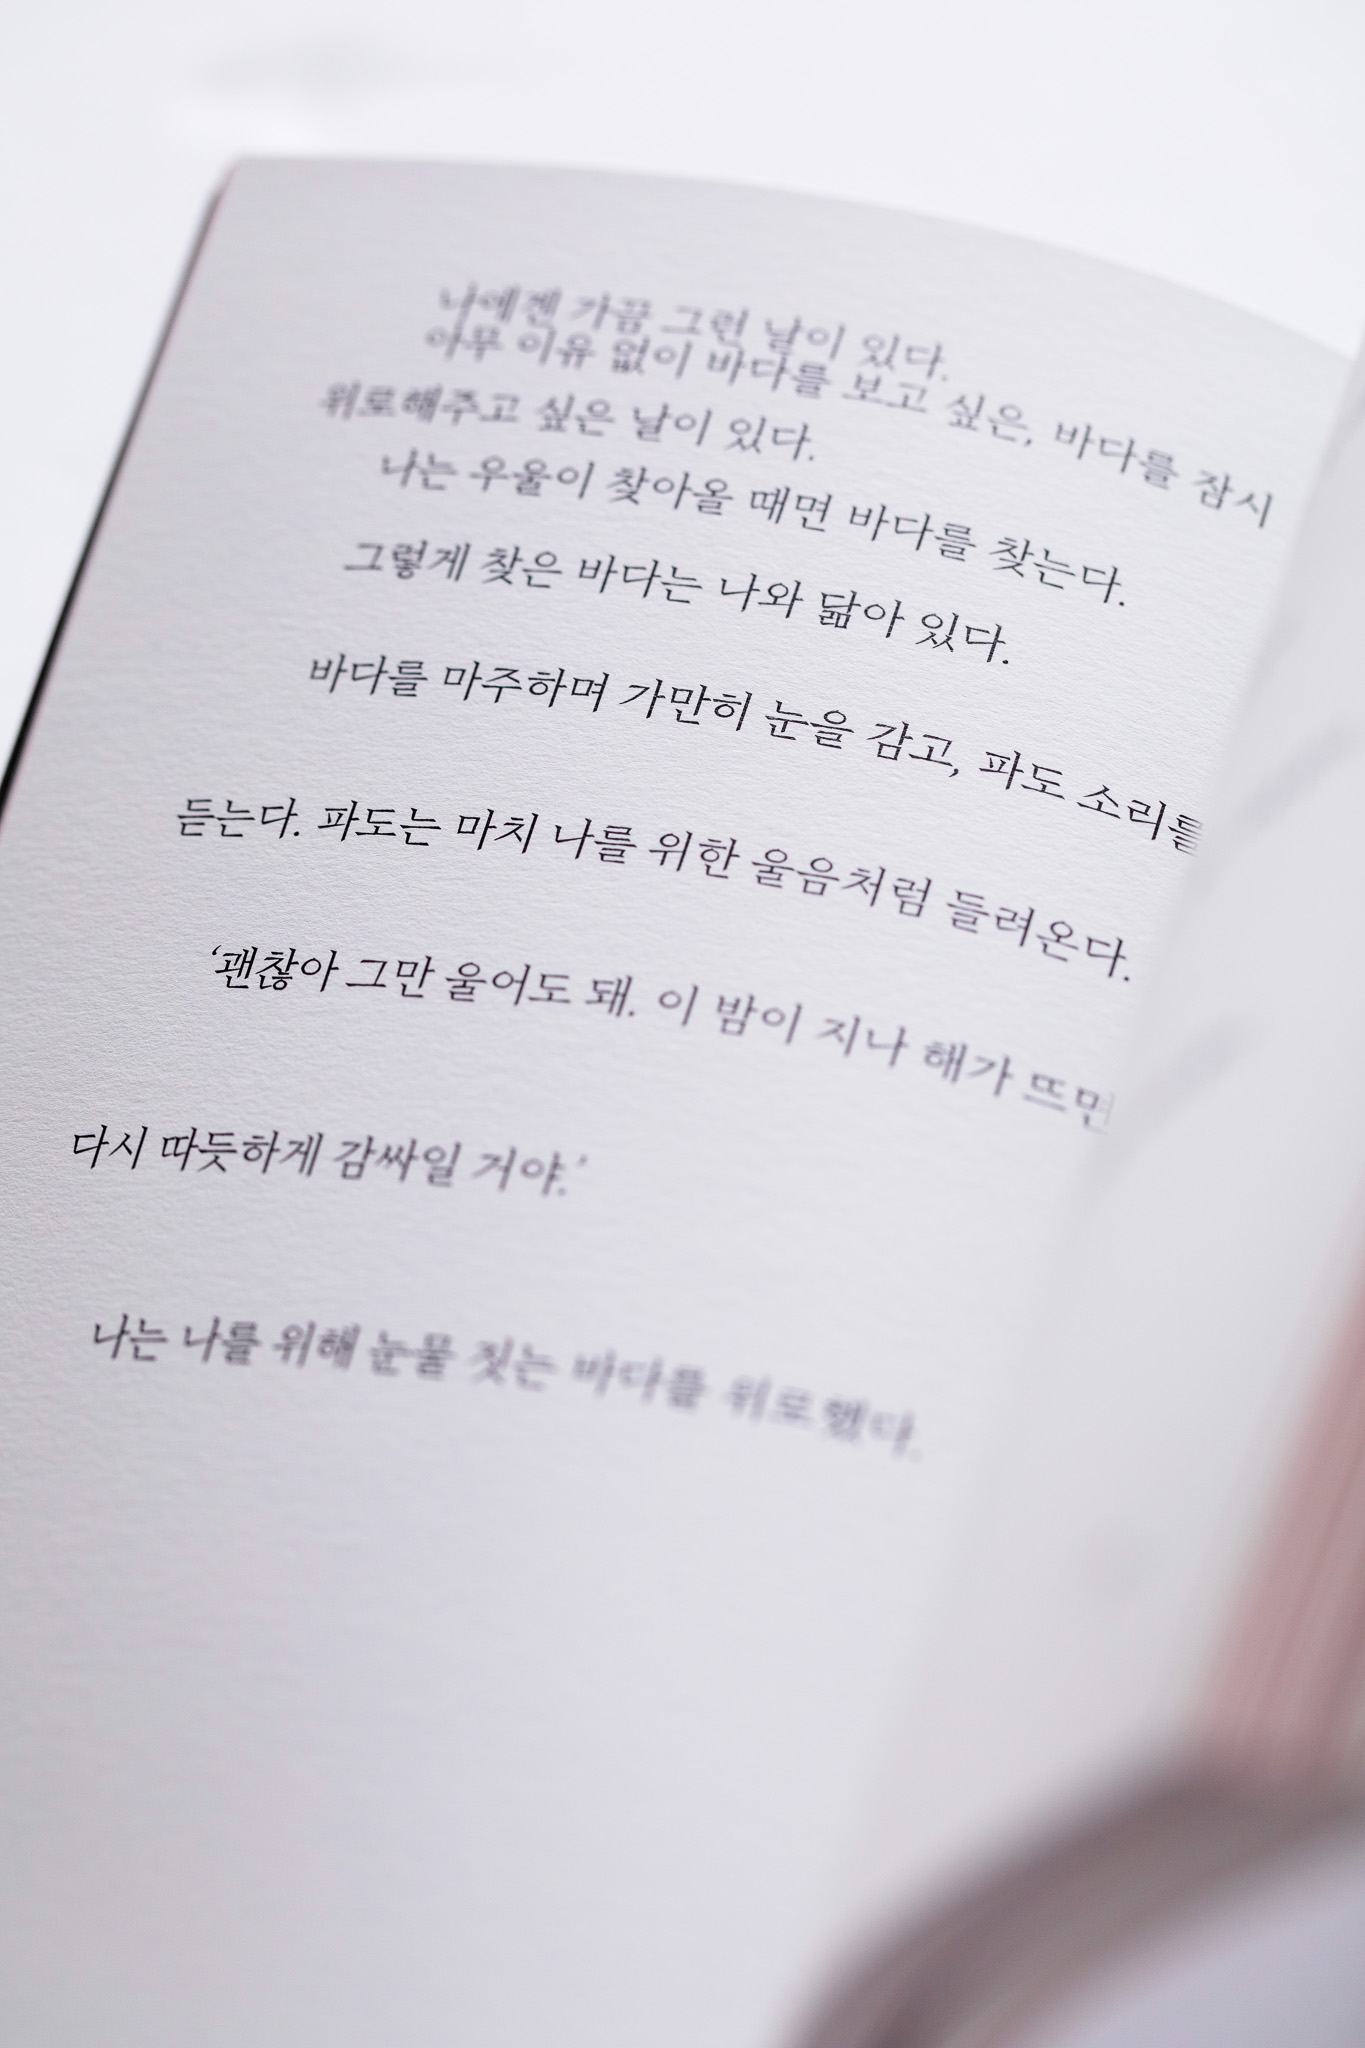 나에겐 가끔 그런 날이 있다.
아무 이유 없이 바다를 보고 싶은, 바다를 잠시
위로해주고 싶은 날이 있다.
나는 우울이 찾아올 때면 바다를 찾는다.
그렇게 찾은 바다는 나와 닮아 있다.
바다를 마주하며 가만히 눈을 감고, 파도 소리를
듣는다. 파도는 마치 나를 위한 울음처럼 들려온다.
‘괜찮아 그만 울어도 돼. 이 밤이 지나 해가 뜨면
다시 따듯하게 감싸일 거야.’
나는 나를 위해 눈물 짓는 바다를 위로했다.